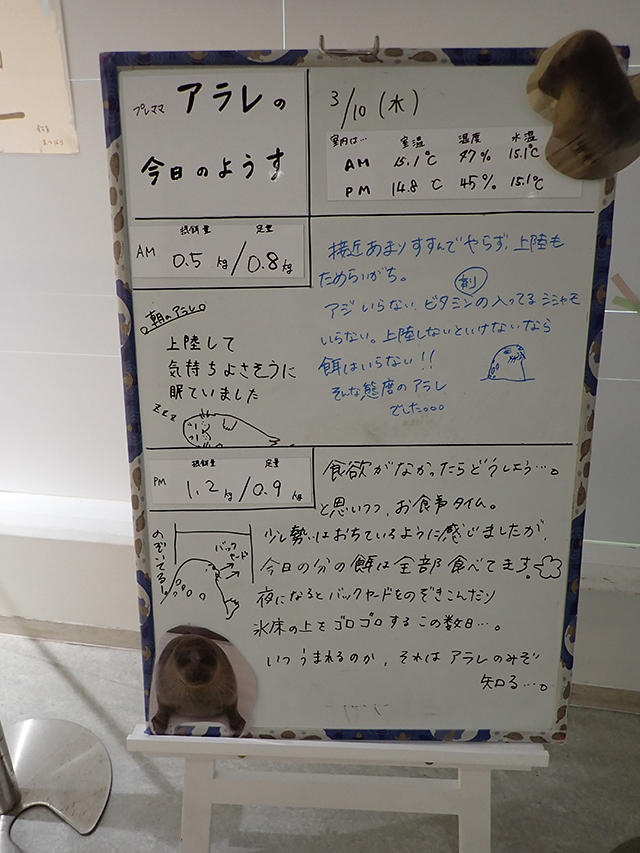 プレママ アラレの
今日のようす
3/10 (水)
室内は… 室温 湿度 水温
AM 15.1℃ 47% 15.1℃
PM 14.8℃ 45% 15.1℃
AM
摂餌量 定量
0.5kg/0.8kg
朝のアラレ
上陸して
気持ちよさそうに
眠ていました
zzz
接近あまりすすんでやらず、上陸も
ためらいがち。
アジいらない、ビタミン剤の入ってるシシャモ
いらない。上陸しないといけないなら
餌はいらない!!
そんな態度のアラレ
でした。。。
PM
摂餌量 定量
1.2kg/0.9kg
食欲がなかったらどうしよう…。
と思いつつ、お食事タイム。
のぞいてる!
バック
ヤード
少し勢いはおちているように感じましたが、
今日の分の餌は全部食べてます。
夜になるとバックヤードをのぞきこんだり
氷床の上をゴロゴロするこの数日…。
いつうまれるのか、それはアラレのみぞ
知る…。